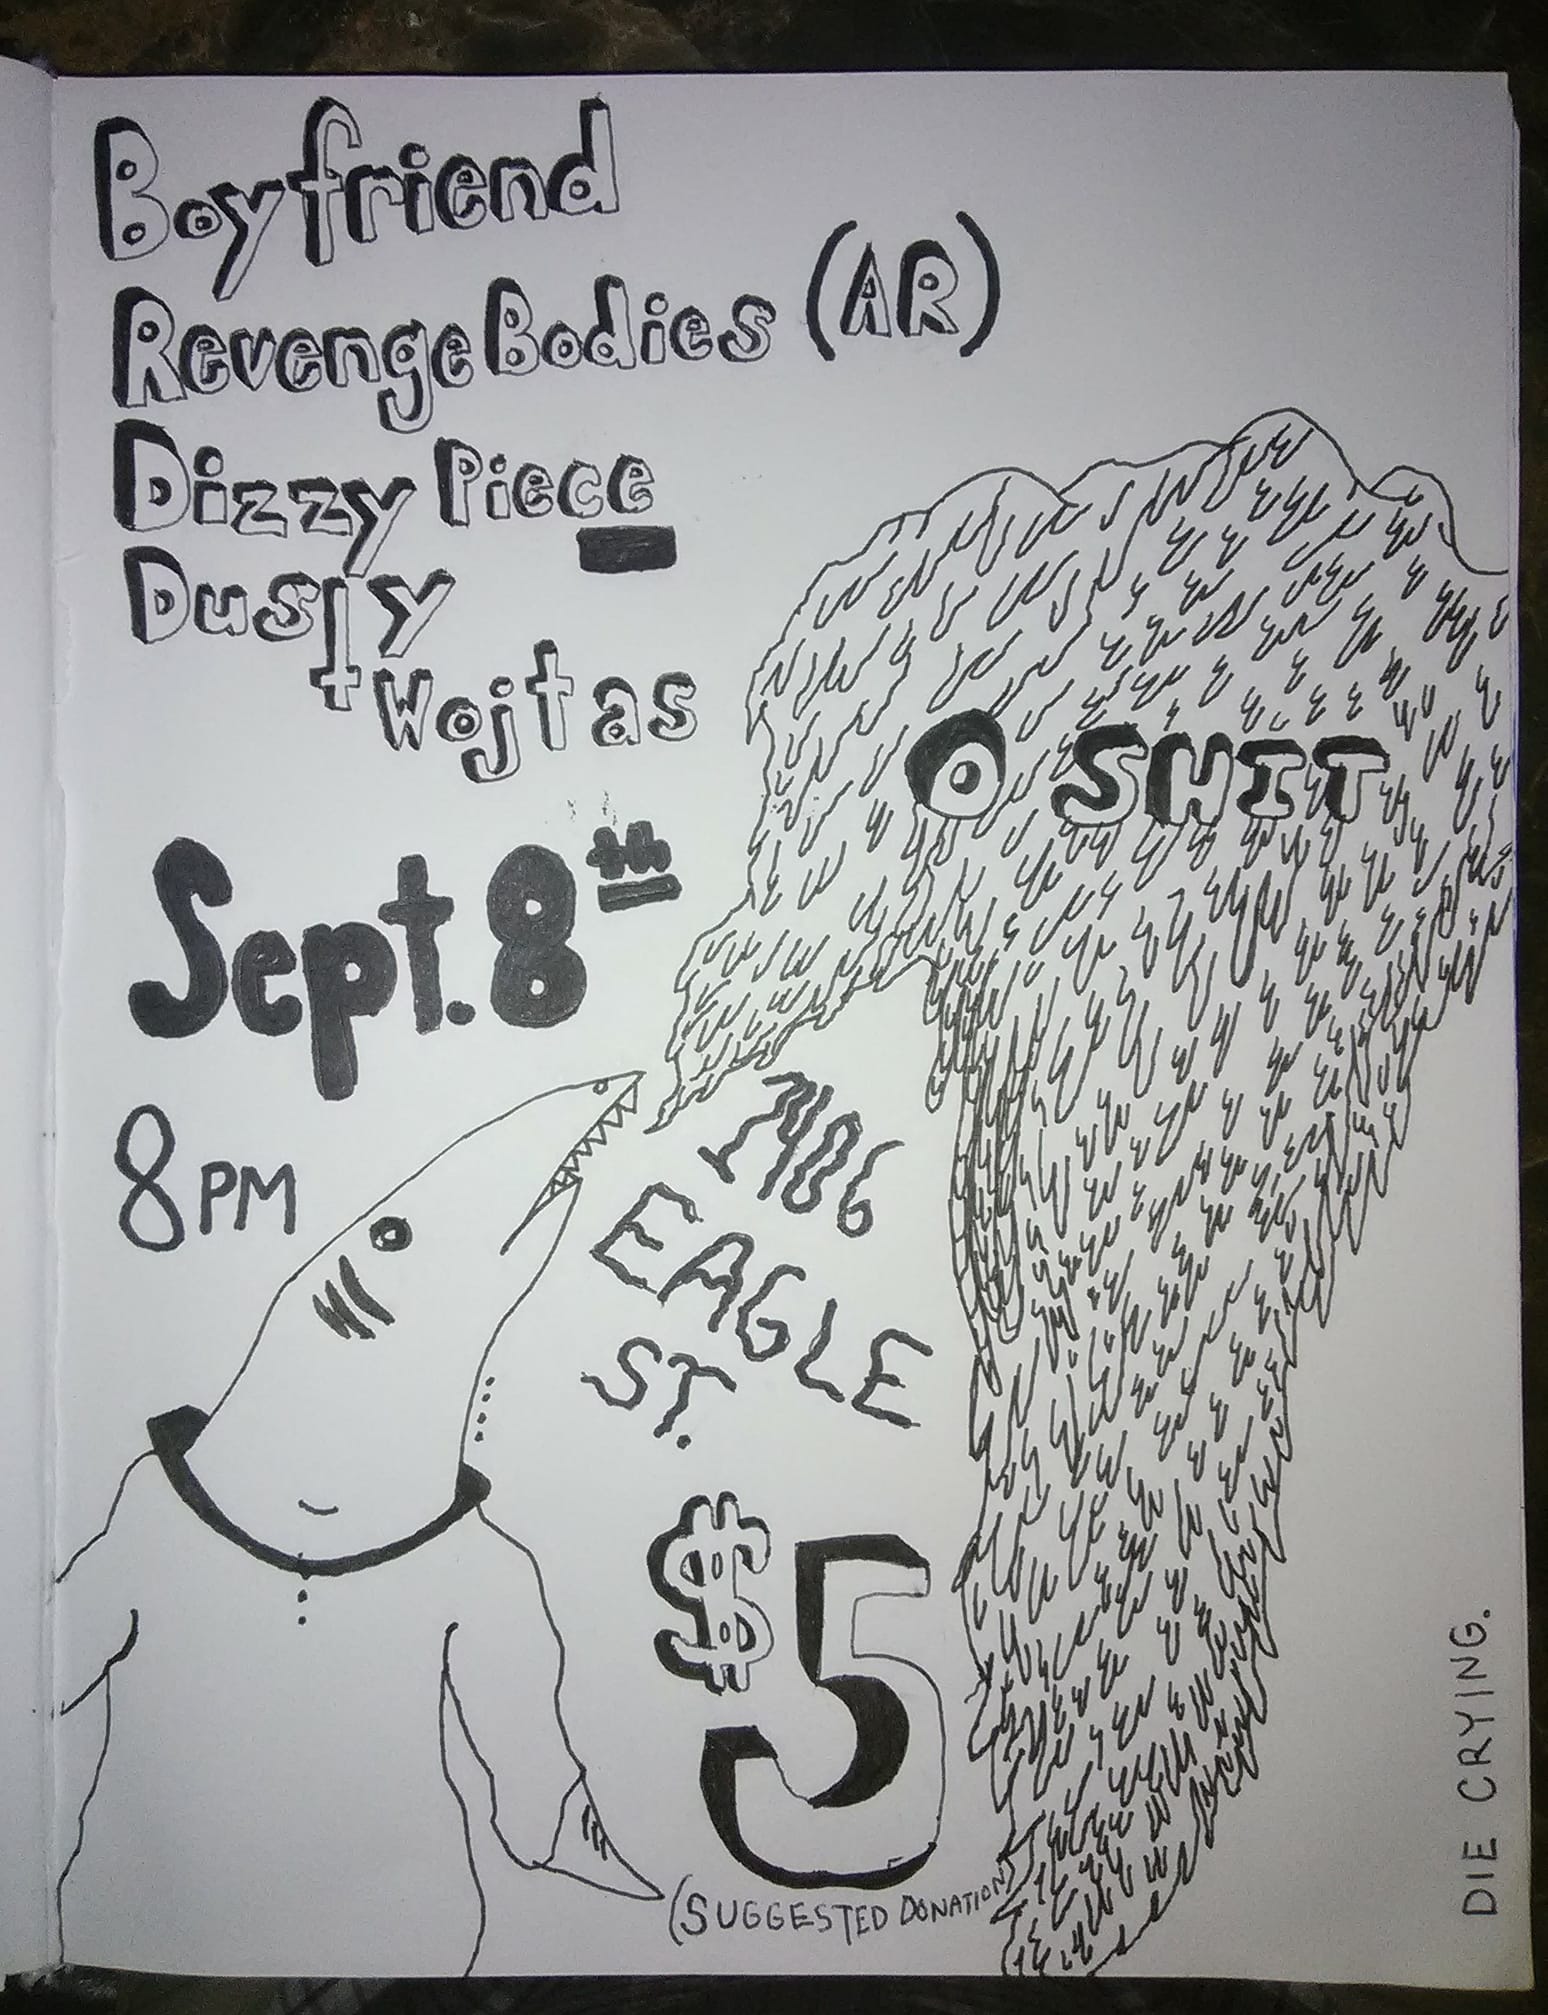 Boyfriend
Revenge Bodies (AR)
Dizzy Piece
Dusty
+ Wojtas
O SHIT
Sept. 8th
8 PM
1406
EAGLE
ST.
$5
(SUGGESTED DONATION)
DIE CRYING.